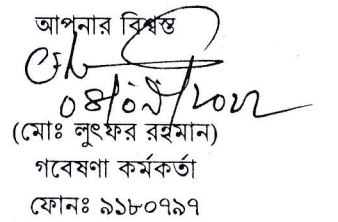 আপনার বিশ্বস্ত
০৪/০৭/২০২২
(মোঃ লুৎফর রহমান)
গবেষণা কর্মকর্তা
ফোনঃ ৯১৮০৭৯৭